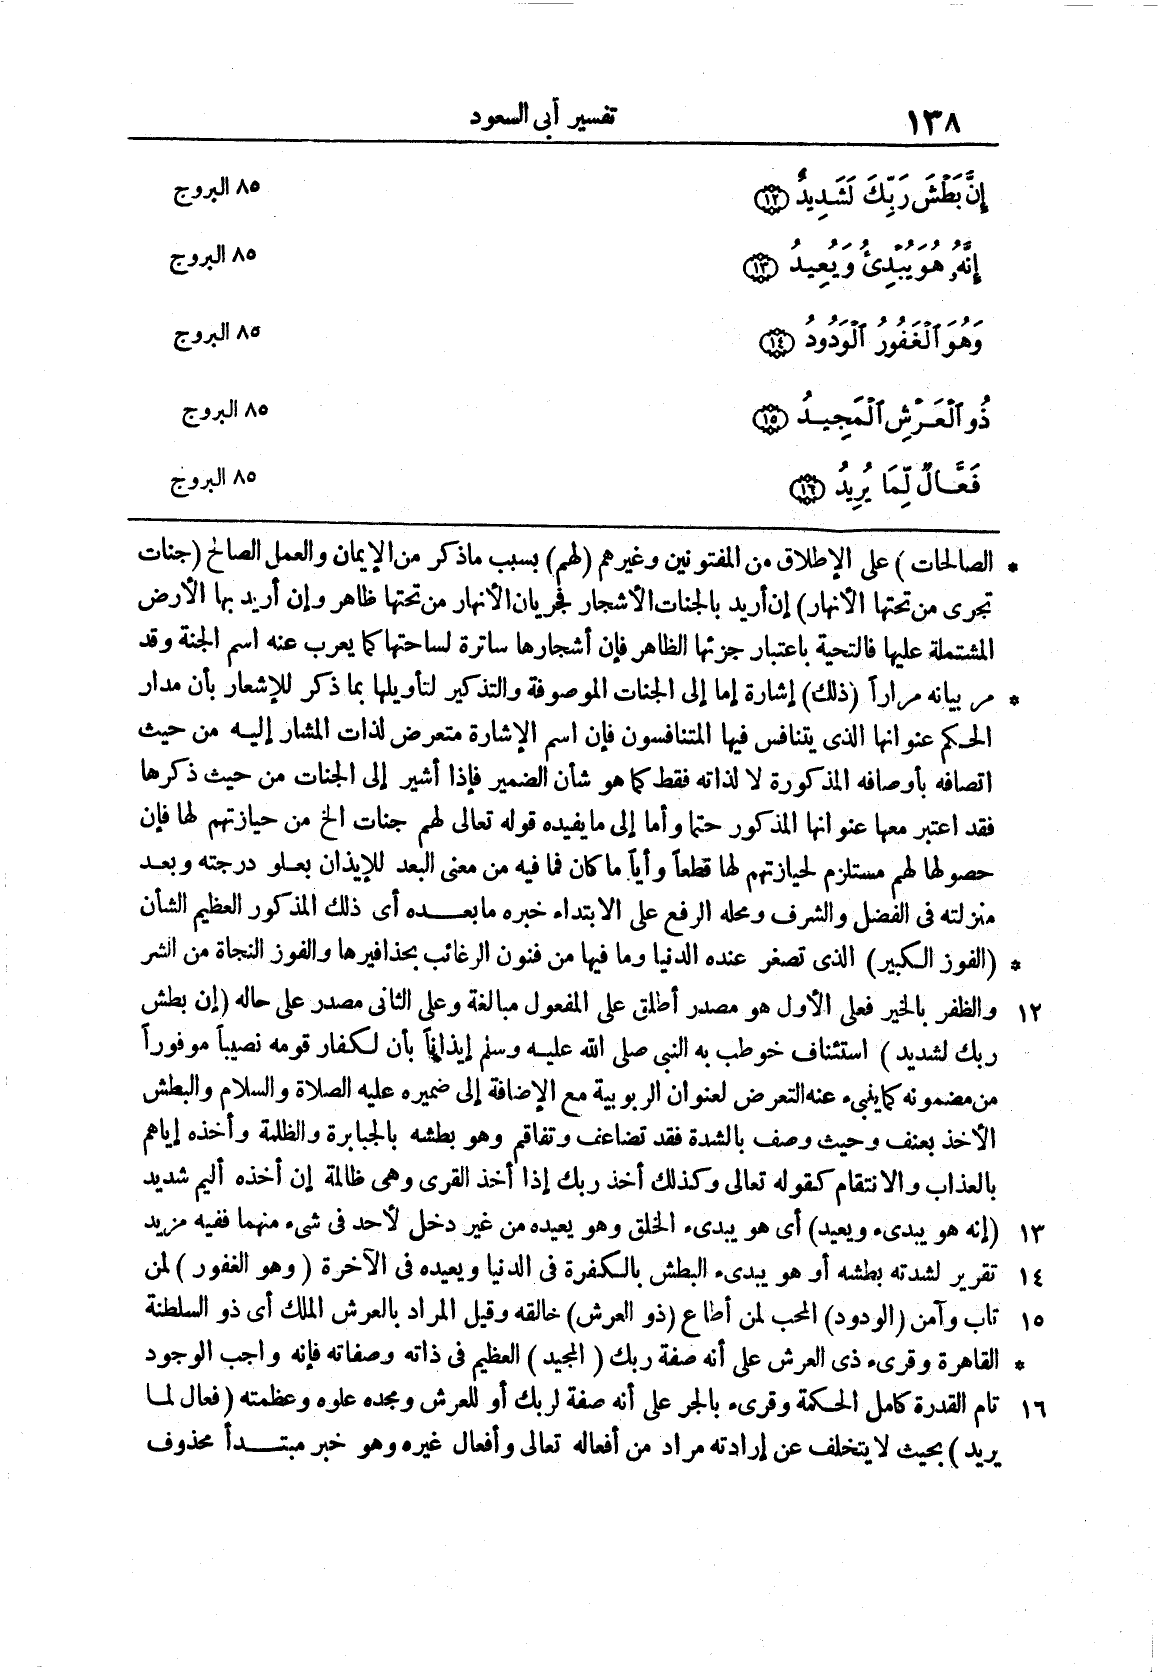 ١٣٨ تفسير أبى السعود
إِنَّ بَطْشَ رَبِّكَ لَشَدِيدٌ ﴿١٢﴾ ٨٥ البروج
إِنَّهُۥ هُوَ يُبْدِئُ وَيُعِيدُ ﴿١٣﴾ ٨٥ البروج
وَهُوَ ٱلْغَفُورُ ٱلْوَدُودُ ﴿١٤﴾ ٨٥ البروج
ذُو ٱلْعَرْشِ ٱلْمَجِيدُ ﴿١٥﴾ ٨٥ البروج
فَعَّالٌ لِّمَا يُرِيدُ ﴿١٦﴾ ٨٥ البروج
* الصالحات ) على الإطلاق من المفتونين وغيرهم (لهم) بسبب ماذكر من الإيمان والعمل الصالح (جنات
تجرى من تحتها الأنهار) إن أريد بالجنات الأشجار فجريان الأنهار من تحتها ظاهر وإن أريد بها الأرض
المشتملة عليها فالتحية باعتبار جزئها الظاهر فإن أشجارها ساترة لساحتها كما يعرب عنه اسم الجنة وقد
* مر بيانه مراراً (ذلك) إشارة إما إلى الجنات الموصوفة والتذكير لتأويلها بما ذكر للإشعار بأن مدار
الحكم عنوانها الذى يتنافس فيها المتنافسون فإن اسم الإشارة متعرض لذات المشار إليه من حيث
اتصافه بأوصافه المذكورة لا لذاته فقط كما هو شأن الضمير فإذا أشير إلى الجنات من حيث ذكرها
فقد اعتبر معها عنوانها المذكور حتما وأما إلى ما يفيده قوله تعالى لهم جنات الخ من حيازتهم لها فإن
حصولها لهم مستلزم لحيازتهم لها قطعاً وأياً ما كان فما فيه من معنى البعد للإيذان بعلو درجته وبعد
منزلته فى الفضل والشرف ومحله الرفع على الابتداء خبره ما بعده أى ذلك المذكور العظيم الشأن
* (الفوز الكبير) الذى تصغر عنده الدنيا وما فيها من فنون الرغائب بحذافيرها والفوز النجاة من الشر
١٢ والظفر بالخير فعلى الأول هو مصدر أطلق على المفعول مبالغة وعلى الثانى مصدر على حاله (إن بطش
ربك لشديد ) استئناف خوطب به النبى صلى الله عليه وسلم إيذاناً بأن لكفار قومه نصيباً موفوراً
من مضمونه كما ينبىء عنه التعرض لعنوان الربوبية مع الإضافة إلى ضميره عليه الصلاة والسلام والبطش
الأخذ بعنف وحيث وصف بالشدة فقد تضاعف وتفاقم وهو بطشه بالجبابرة والظلمة وأخذه إياهم
بالعذاب والانتقام كقوله تعالى وكذلك أخذ ربك إذا أخذ القرى وهى ظالمة إن أخذه أليم شديد
١٣ (إنه هو يبدىء ويعيد) أى هو يبدىء الخلق وهو يعيده من غير دخل لأحد فى شىء منهما ففيه مزيد
١٤ تقرير لشدته بطشه أو هو يبدىء البطش بالكفرة فى الدنيا ويعيده فى الآخرة ( وهو الغفور ) لمن
١٥ تاب وآمن (الودود) المحب لمن أطاع (ذو العرش) خالقه وقيل المراد بالعرش الملك أى ذو السلطنة
* القاهرة وقرىء ذى العرش على أنه صفة ربك ( المجيد ) العظيم فى ذاته وصفاته فإنه واجب الوجود
١٦ تام القدرة كامل الحكمة وقرىء بالجر على أنه صفة لربك أو للعرش ومجده علوه وعظمته ( فعال لما
يريد ) بحيث لا يتخلف عن إرادته مراد من أفعاله تعالى وأفعال غيره وهو خبر مبتدأ محذوف